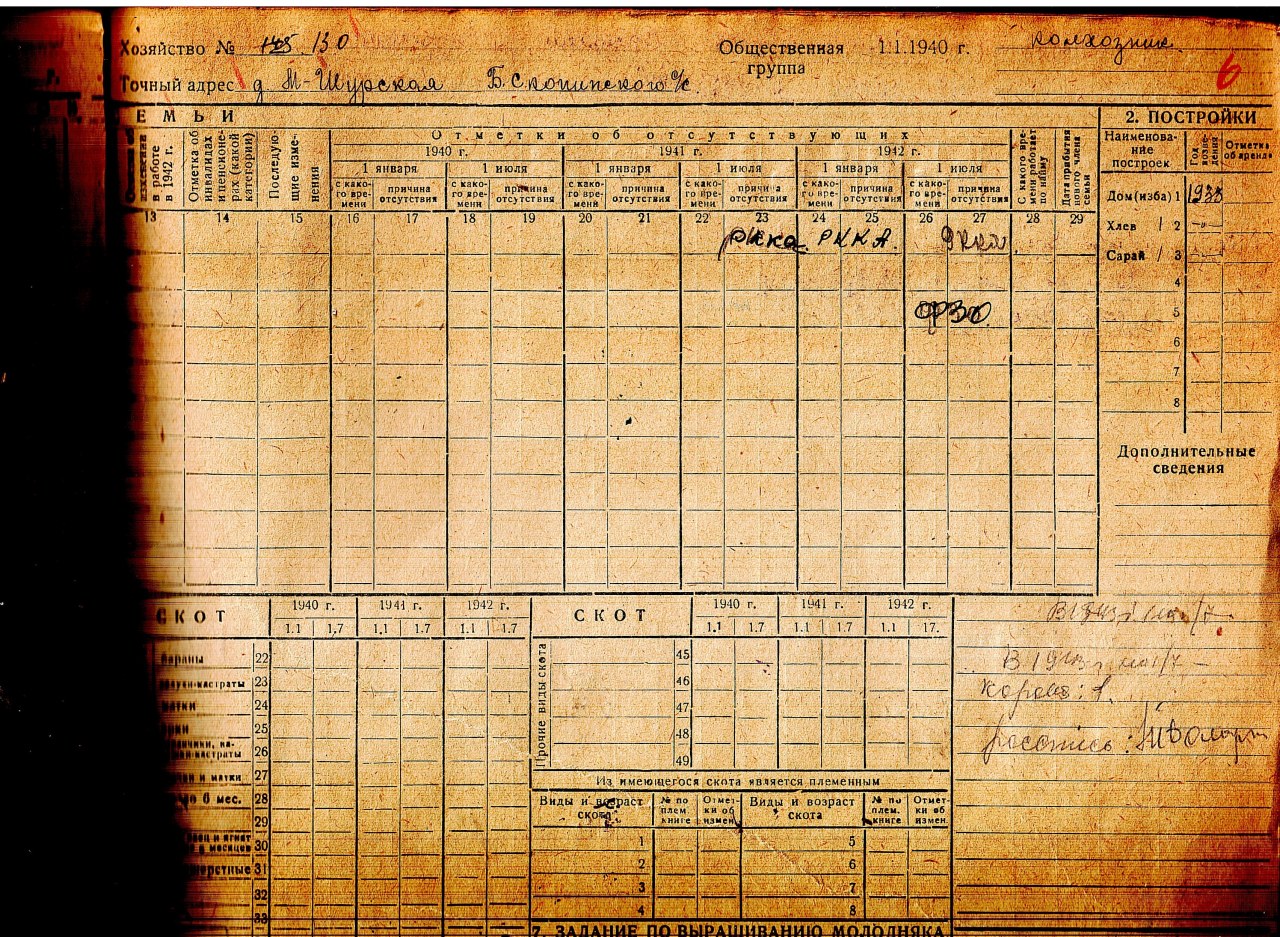 г.
Хозяйство № 175 130
Общественная группа 1.1.1940 г. колхозник
6
Точный адрес д. М-Шурская Б. Скопинского с/с
ЕМЬИ
в работе в 1942 г.
Отметка об инвалидах и пенсионерах (какой категории)
Последующие изменения
Отметки об отсутствующих
1940 г. 1941 г. 1942 г.
1 января 1 июля 1 января 1 июля 1 января 1 июля
с какого времени причина отсутствия с какого времени причина отсутствия с какого времени причина отсутствия с какого времени причина отсутствия с какого времени причина отсутствия с какого времени причина отсутствия
С какого времени работает по найму
Дата прибытия нового члена семьи
13 14 15 16 17 18 19 20 21 22 23 24 25 26 27 28 29
ркка. РККА. Ркка
ФЗО
2. ПОСТРОЙКИ
Наименование построек Год возведения Отметка об аренде
Дом (изба) 1 1933
Хлев / 2 -"-
Сарай / 3 -"-
4
5
6
7
8
Дополнительные сведения
СКОТ 1940 г. 1941 г. 1942 г.
1.1 1.7 1.1 1.7 1.1 1.7
Бараны 22
кастраты 23
матки 24
25
кастраты 26
и матки 27
до 6 мес. 28
29
месяцев 30
31
32
33
СКОТ 1940 г. 1941 г. 1942 г.
1.1 1.7 1.1 1.7 1.1 17.
Прочие виды скота
45
46
47
48
49
Из имеющегося скота является племенным
Виды и возраст скота № по плем. книге Отметки об измен. Виды и возраст скота № по плем. книге Отметки об измен.
1 5
2 6
3 7
4 8
7. ЗАДАНИЕ ПО ВЫРАЩИВАНИЮ МОЛОДНЯКА
В 1943 г. на 1/7
В 1943 г. на 1/7 –
корова: 1.
роспись: